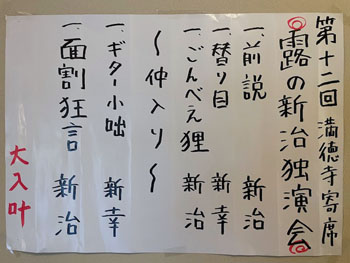 第十二回 満徳寺寄席
露の新治独演会
一、前説 新治
一、替り目 新幸
一、ごんべえ狸 新治
〜仲入り〜
一、ギター小咄 新幸
一、面割狂言 新治
大入叶